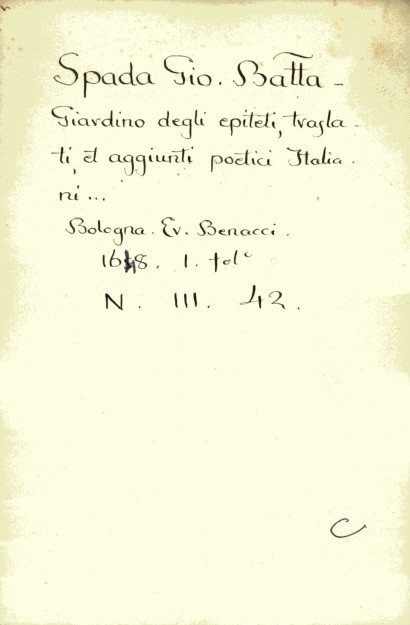 Spada Gio. Batta -
Giardino degli epiteti, trasla-
ti, et aggiunti poetici Italia-
ni...
Bologna. Ev. Benacci.
1648. 1. fol°
N. III. 42.
C